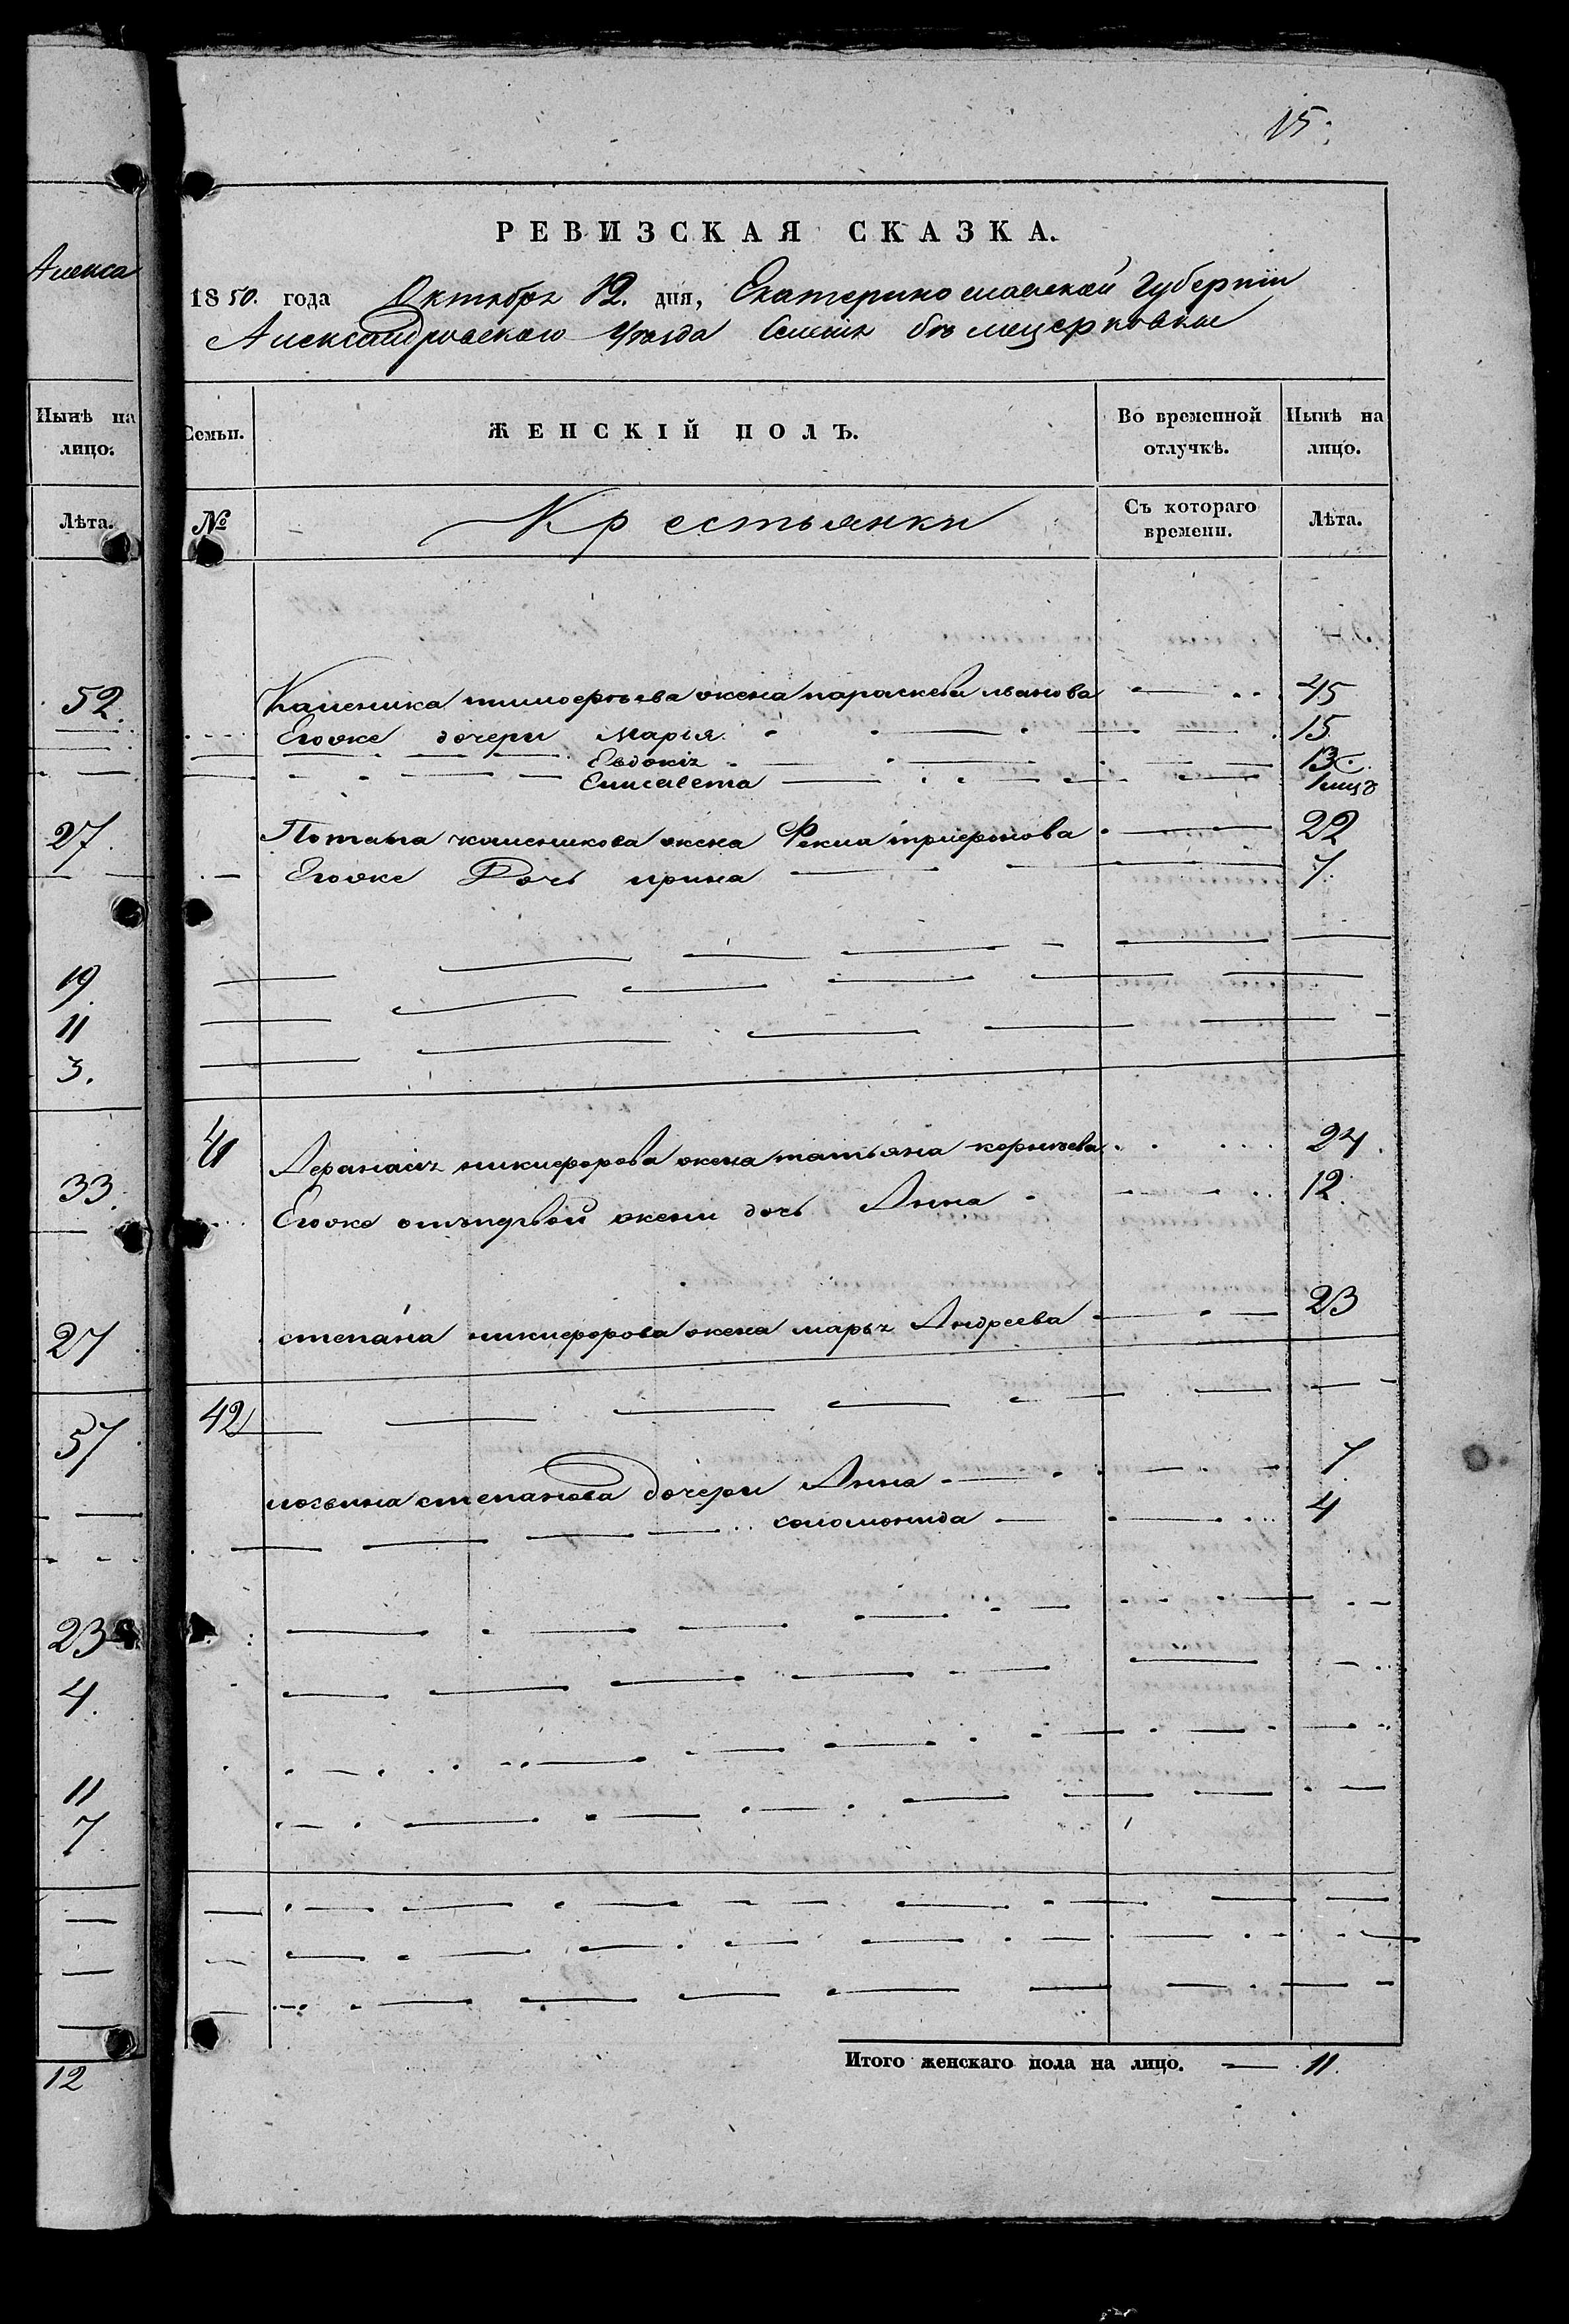 15.
Алекса
РЕВИЗСКАЯ СКАЗКА.
1850. года Октября 12. дня, Екатеринославской Губернии
Александровского Уезда Селения Белоцерковки
Нынѣ на лицо.
Лѣта.
Семьи.
ЖЕНСКІЙ ПОЛЪ.
Во временной отлучкѣ.
Нынѣ на лицо.
№
Крестьянки
Съ котораго времени.
Лѣта.
52. Каленика тимоефьева жена параскева иванова 45
Егоже дочери марья 15
Евдокія 13
Елисавета 1 мцъ
27. Потапа каленикова жена Фекла трисфонова 22
Егоже Дочь ирина 7
19
11
3.
41 Афанасія никифорова жена татьяна корнеева 24.
33. Егоже отъ первой жени дочь Анна 12.
27 степана никифорова жена марья Андреева 23
42
57 логвина степанова дочери Анна 7
соломонида 4
23
4.
11
7
12
Итого женскаго пола на лицо. 11.